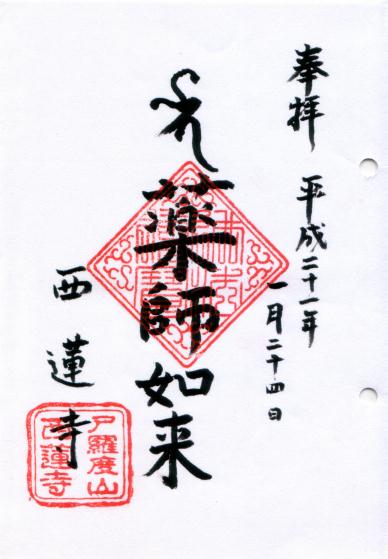 奉拝 平成二十一年
一月二十四日
薬師如来
西蓮寺
尸羅度山
西蓮寺